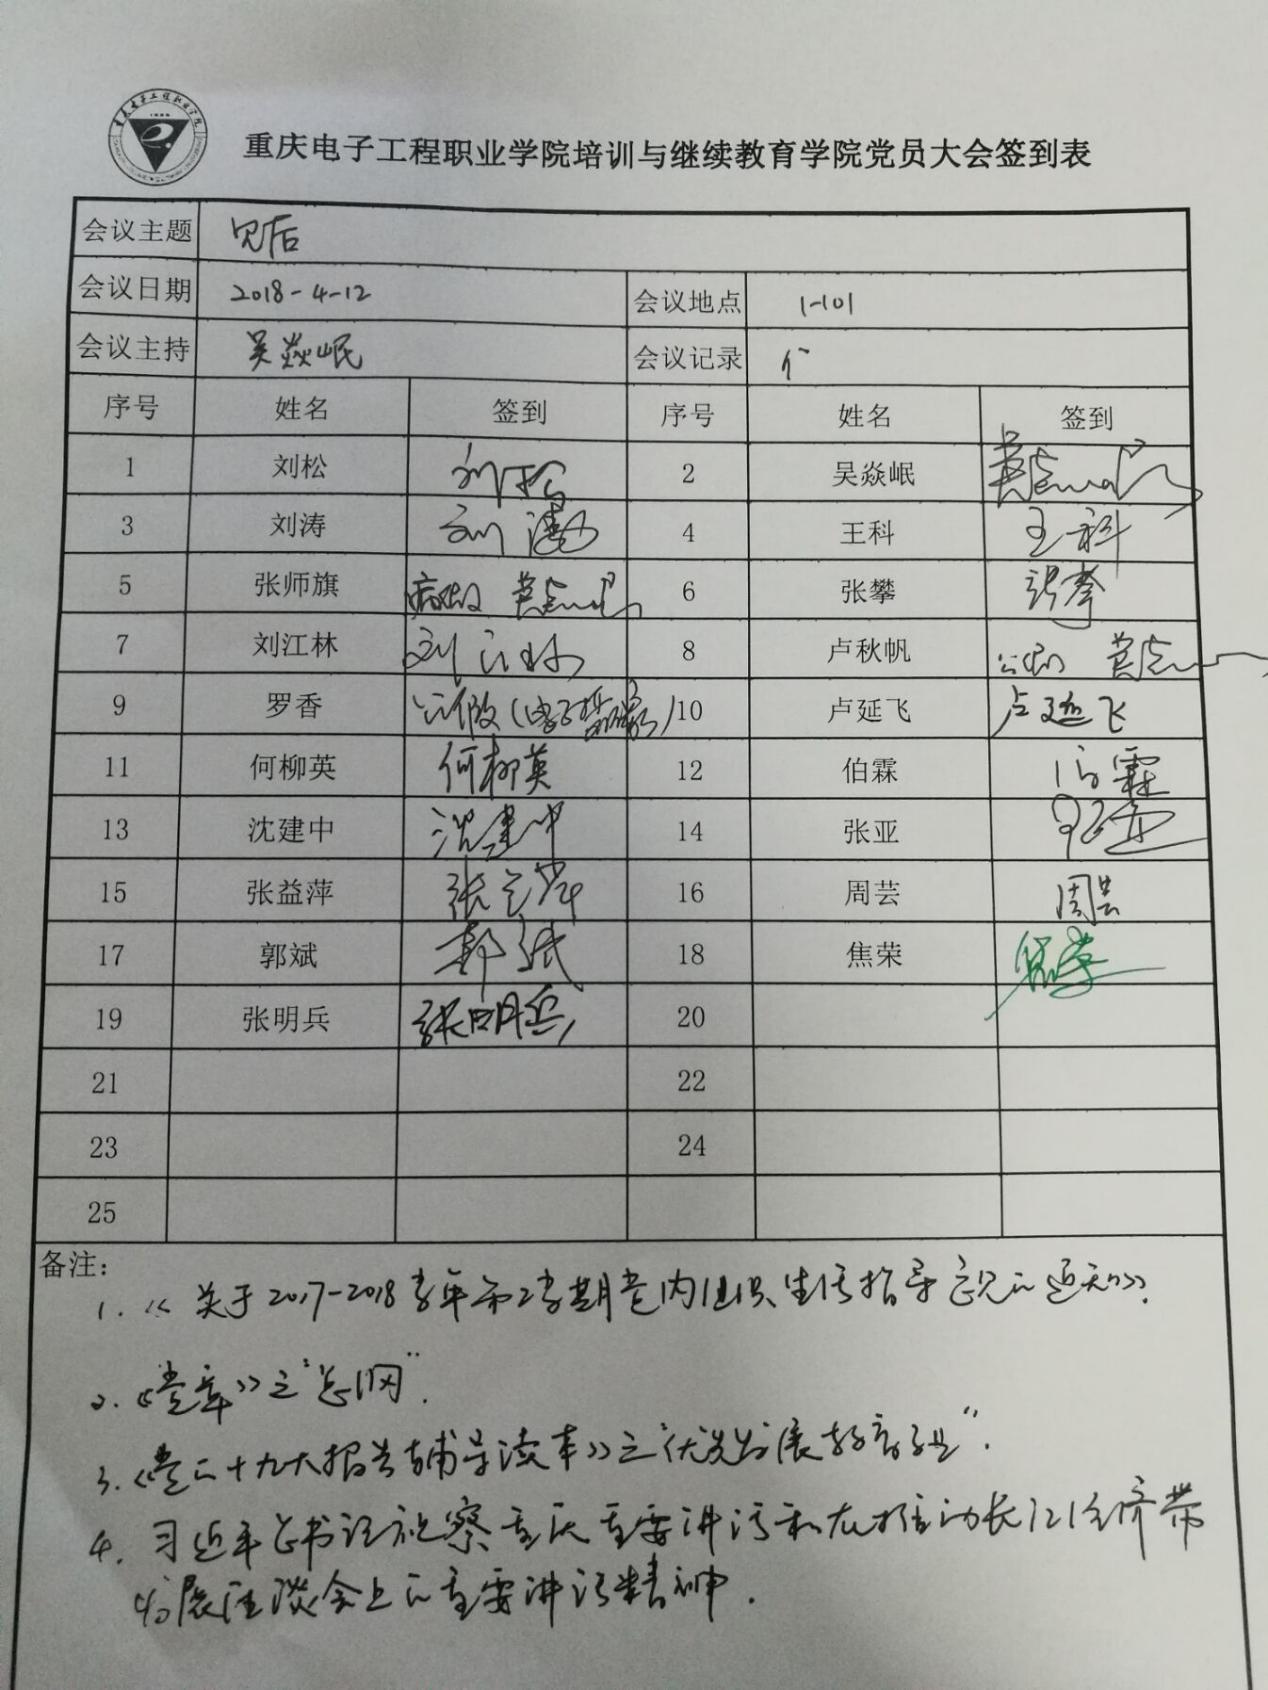 重庆电子工程职业学院培训与继续教育学院党员大会签到表
会议主题 见后
会议日期 2018-4-12 会议地点 1-101
会议主持 吴焱岷 会议记录
序号 姓名 签到 序号 姓名 签到
1 刘松 刘松 2 吴焱岷
3 刘涛 刘涛 4 王科 王科
5 张师旗 6 张攀 张攀
7 刘江林 刘江林 8 卢秋帆 公假
9 罗香 公假 10 卢延飞 卢延飞
11 何柳英 何柳英 12 伯霖 伯霖
13 沈建中 沈建中 14 张亚 张亚
15 张益萍 张益萍 16 周芸 周芸
17 郭斌 郭斌 18 焦荣 焦荣
19 张明兵 张明兵 20
21 22
23 24
25
备注：
1. 《关于2017-2018学年第2学期党内组织生活指导意见的通知》.
2. 《党章》之"总纲".
3. 《党的十九大报告辅导读本》之"优先发展教育事业".
4. 习近平总书记视察重庆重要讲话和在推动长江经济带
发展座谈会上的重要讲话精神.